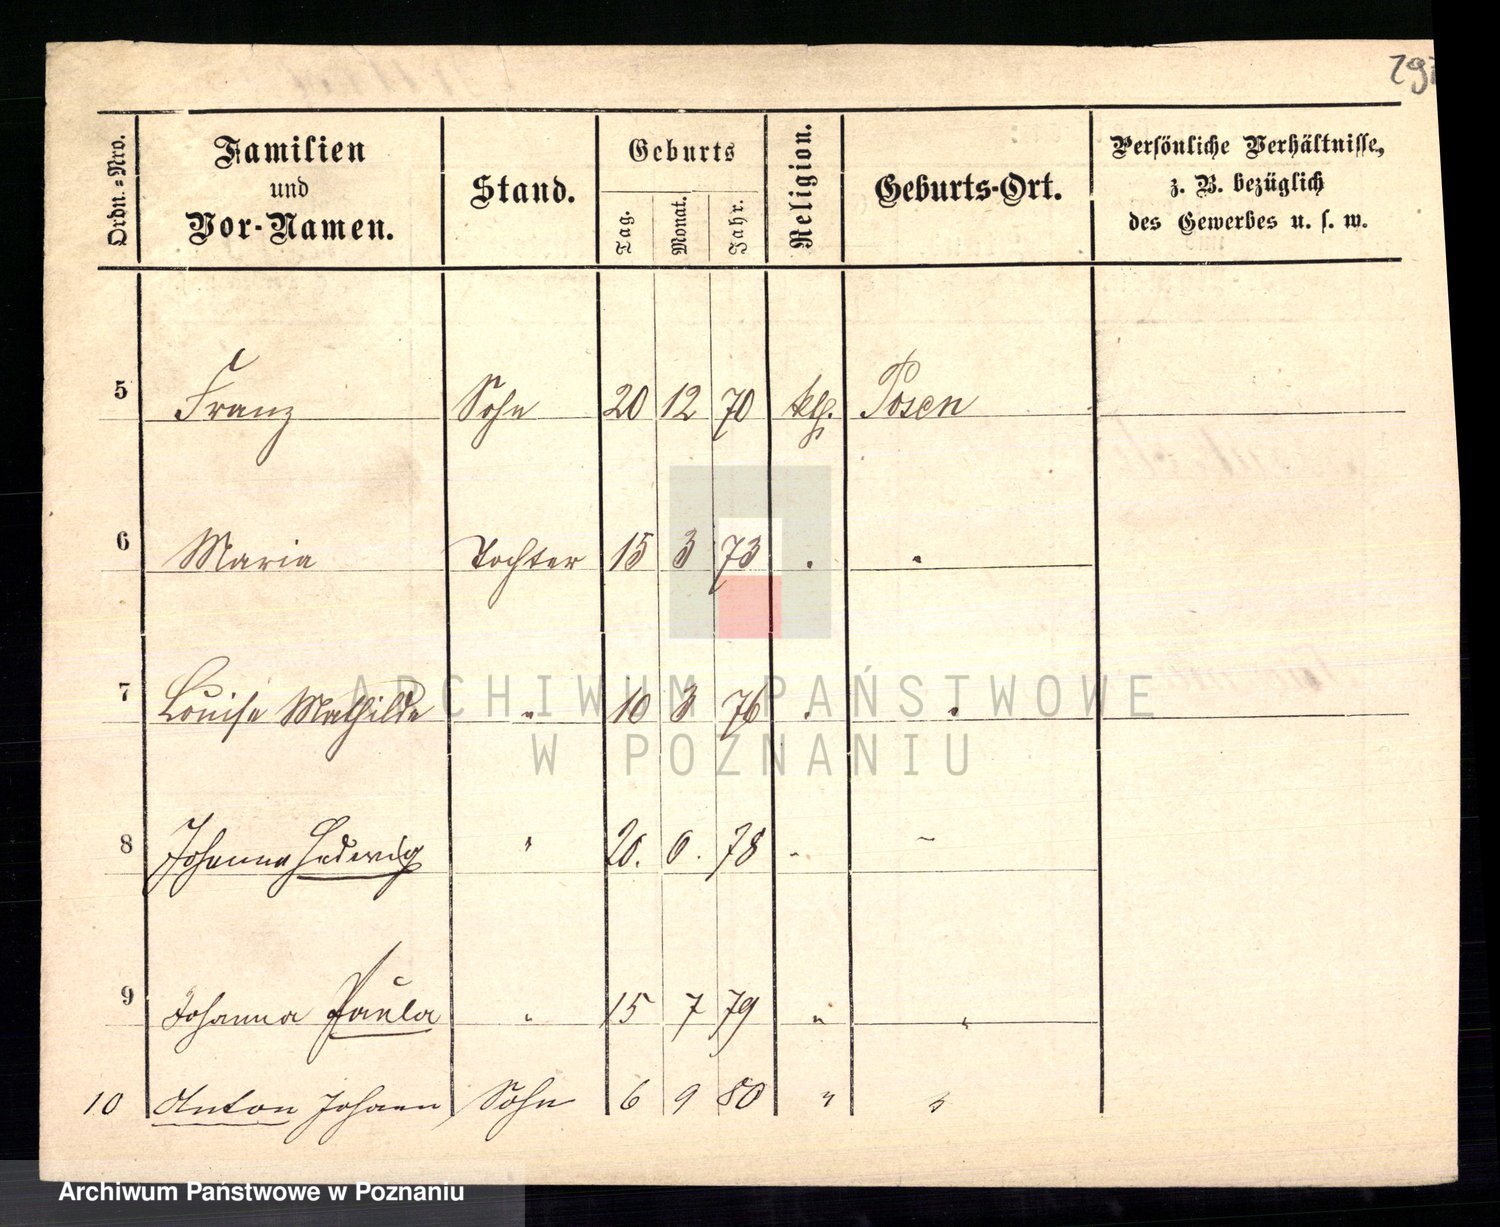 297
Ordn.=Nro.
Familien
und
Vor-Namen.
Stand.
Geburts
Tag.
Monat.
Jahr.
Religion.
Geburts-Ort.
Persönliche Verhältnisse,
z. B. bezüglich
des Gewerbes u. s. w.
5 Franz Sohn 20 12 70 kth. Posen
6 Maria Tochter 15 3 73 " "
7 Louise Mathilde " 10 3 76 " "
8 Johanna Hedwig " 20. 78 " "
9 Johanna Paula " 15 7 79 " "
10 Anton Johann Sohn 6 9 80 " "
ARCHIWUM PAŃSTWOWE
W POZNANIU
Archiwum Państwowe w Poznaniu